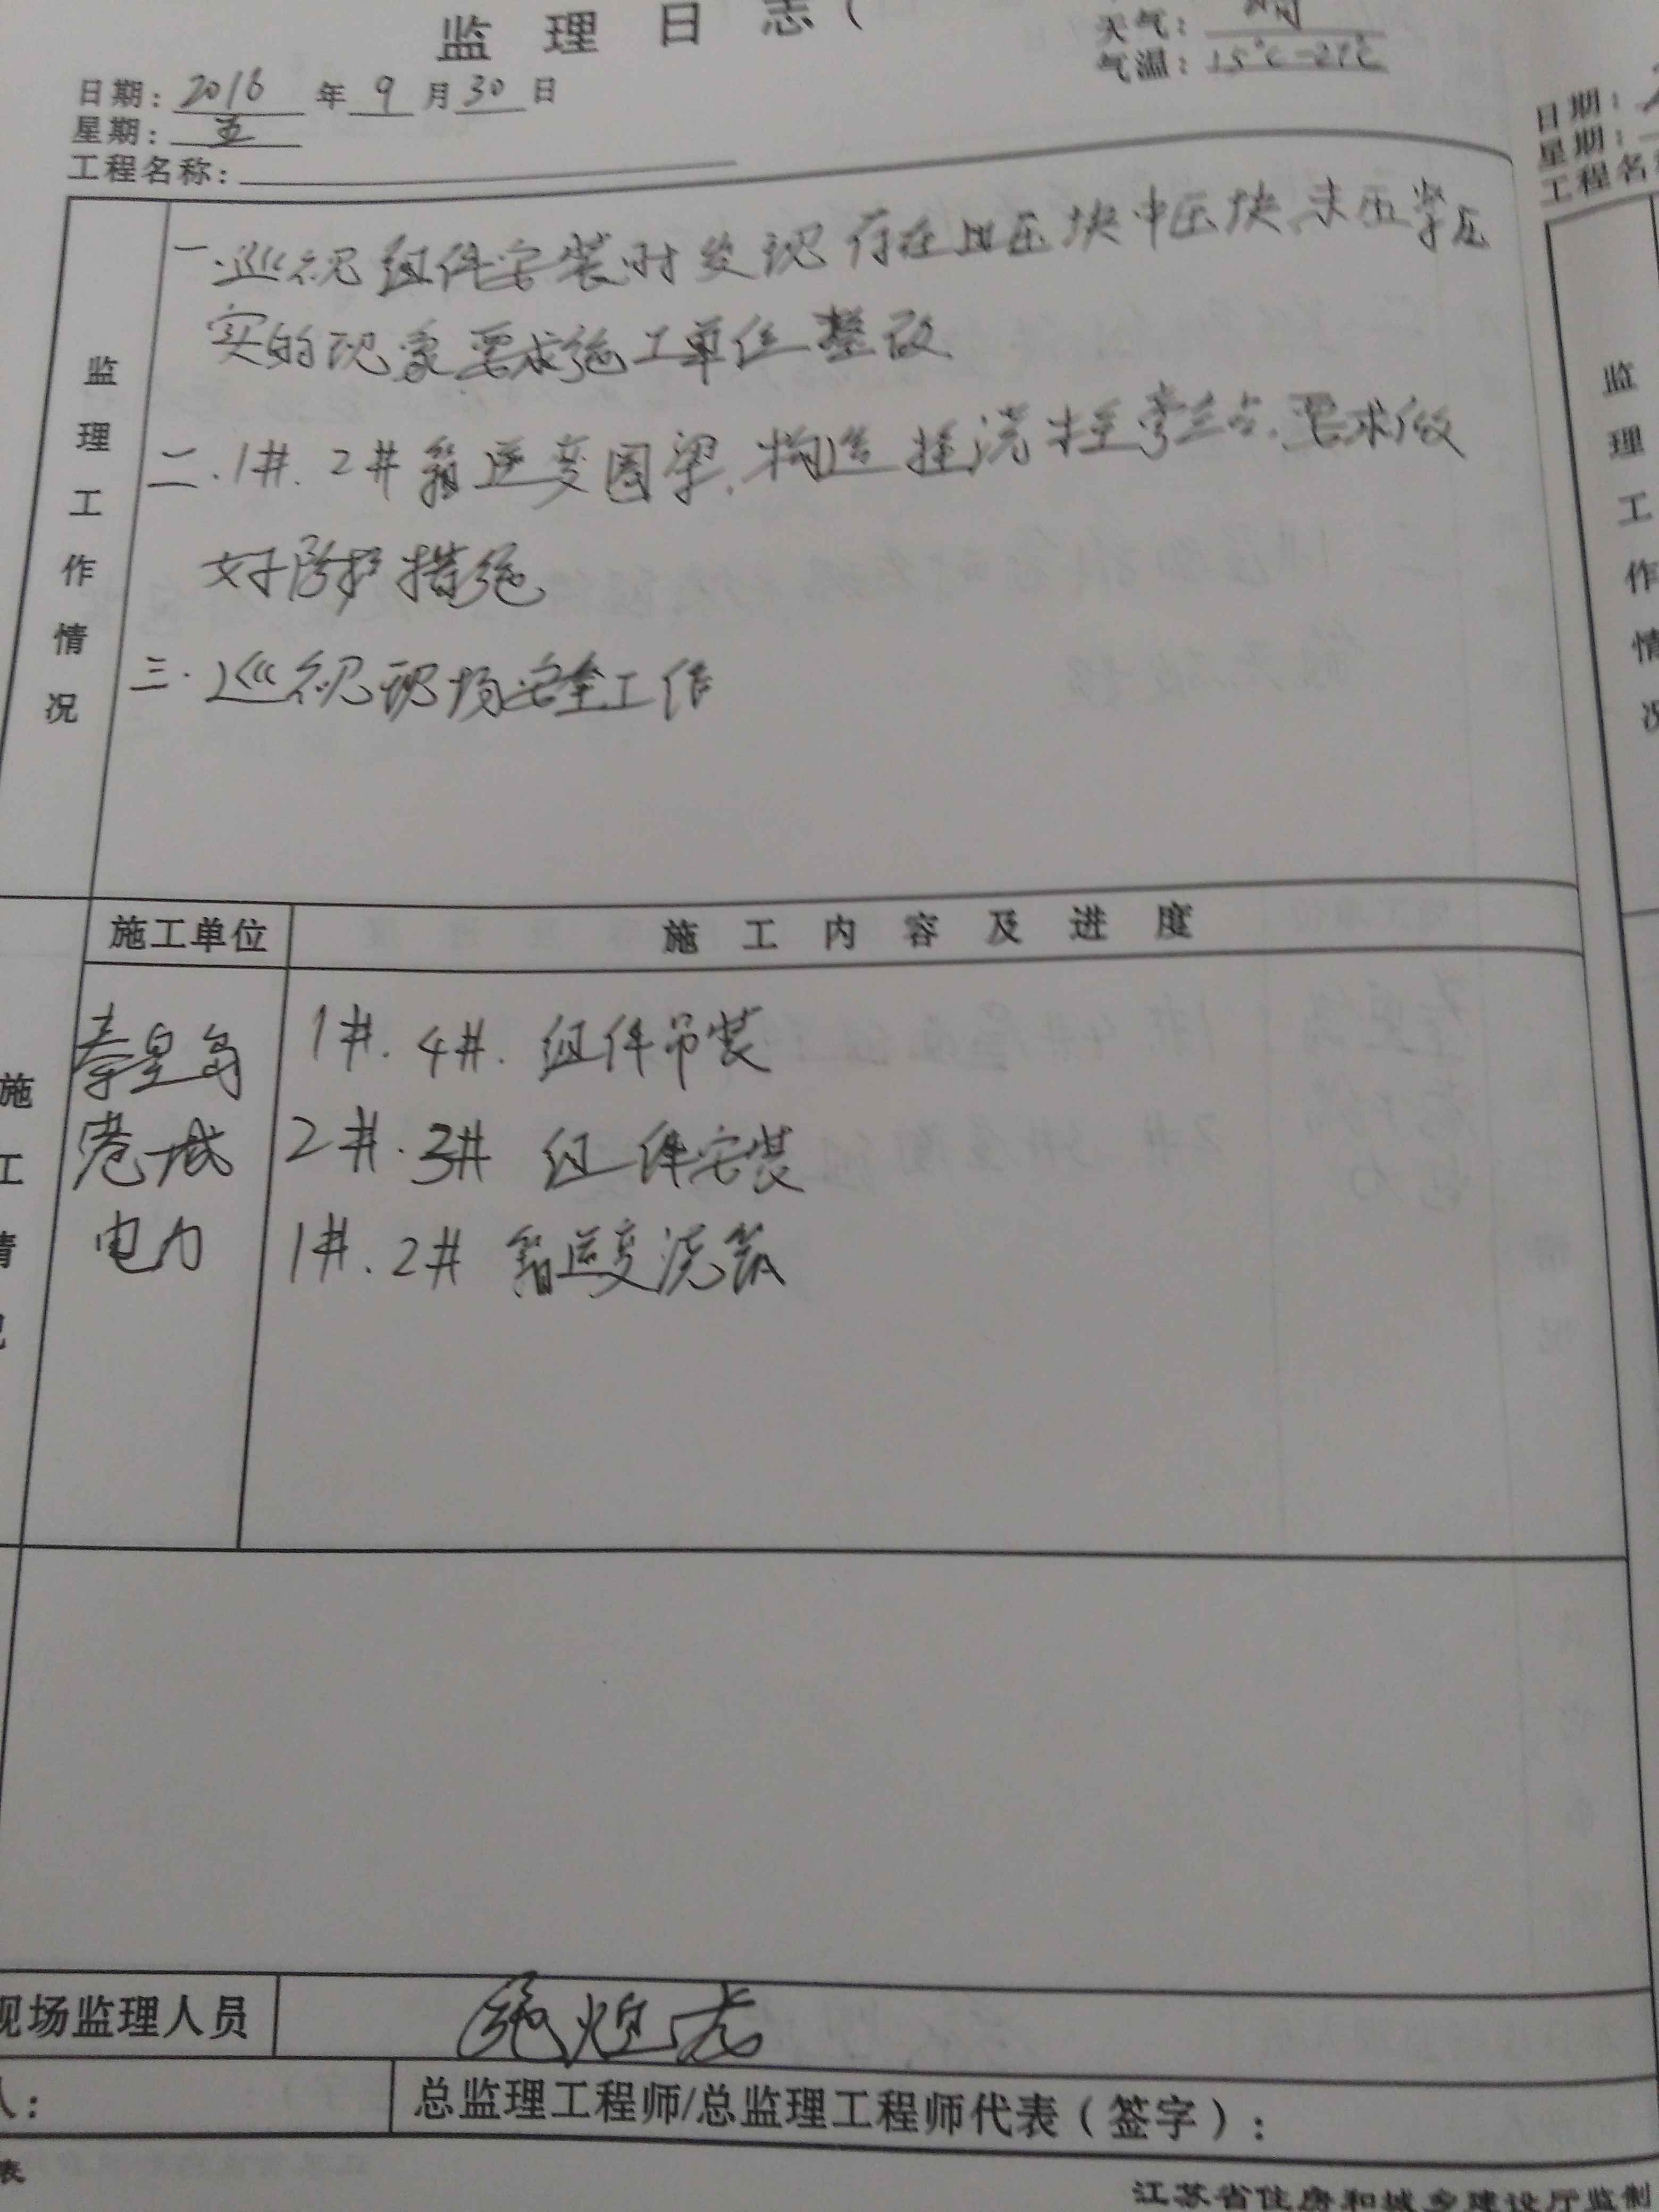 监理日志(
天气: 晴
气温: 15℃-21℃
日期: 2016年9月30日
星期: 五
工程名称:
监理工作情况
一.巡视组件安装时发现存在 压块中压块未压紧压
实的现象要求施工单位整改
二.1#.2#箱逆变圈梁.构造柱浇 要求做
好防护措施
三.巡视现场安全工作
施工单位 施工内容及进度
施工情况
秦皇岛
港城
电力
1#.4#.组件吊装
2#.3# 组件安装
1#.2# 箱逆变浇筑
现场监理人员
人:
总监理工程师/总监理工程师代表(签字):
表
江苏省住房和城乡建设厅监制
日期:
星期:
工程名
监理工作情况